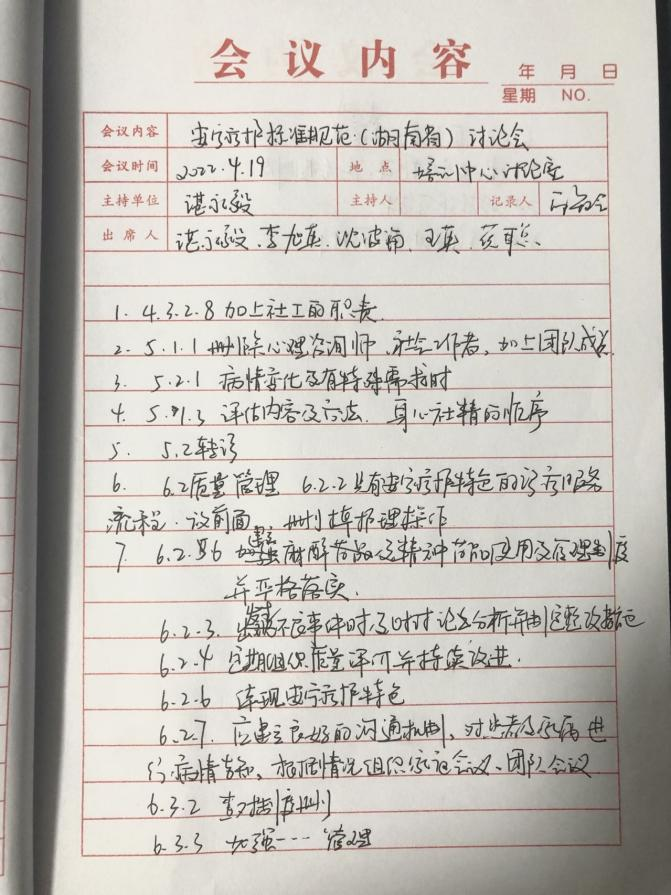 会议内容
年 月 日
星期 NO.
会议内容 安宁疗护标准规范(湖南省)讨论会
会议时间 2022.4.19 地点 培训中心讨论室
主持单位 谌永毅 主持人 记录人
出席人 谌永毅、李旭英、沈波涌、王英、
1. 4.3.2.8 加上社工的职责
2. 5.1.1 删除心理咨询师、社会工作者,加上团队成员
3. 5.2.1 病情变化及有特殊需求时
4. 5.1.3 评估内容及方法、身心社精的顺序
5. 5.2 转诊
6. 6.2质量管理 6.2.2具有安宁疗护特色的诊疗服务
流程、设前面、删掉护理操作
7 6.2.6 麻醉药品及精神药品使用及管理制度
并严格落实.
6.2.3. 不良事件时及时讨论分析并制定整改措施
6.2.4 定期组织质量评价并持续改进.
6.2.6 体现安宁疗护特色
6.2.7. 应建立良好的沟通机制,对患者及家属进
行病情告知,根据情况组织家庭会议、团队会议
6.3.2 删
6.3.3 加强…… 管理